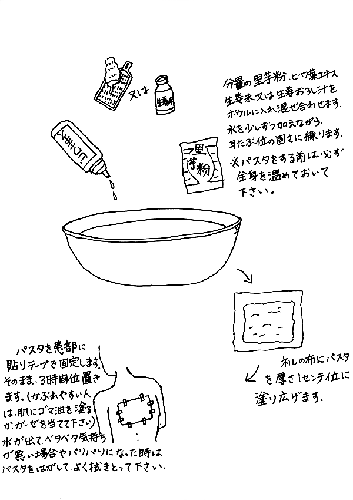 分量の里芋粉、ビワ葉エキス
生姜末又は生姜おろし汁を
ボウルに入れ混ぜ合わせます。
水を少しずつ加えながら、
耳たぶ位の固さに練ります。
※パスタをする前は必ず
全身を温めておいて
下さい。
又は
里芋粉
ネルの布にパスタ
を厚さ1センチ位に
塗り広げます。
パスタを患部に
貼りテープで固定します。
そのまま、3時間位置き
ます。(かぶれやすい人
は、肌にゴマ油を塗る
か、ガーゼを当てて下さい)
水が出て、ベタベタ気持ち
が悪い場合やパリパリになった時は
パスタをはがして、よく拭きとって下さい。